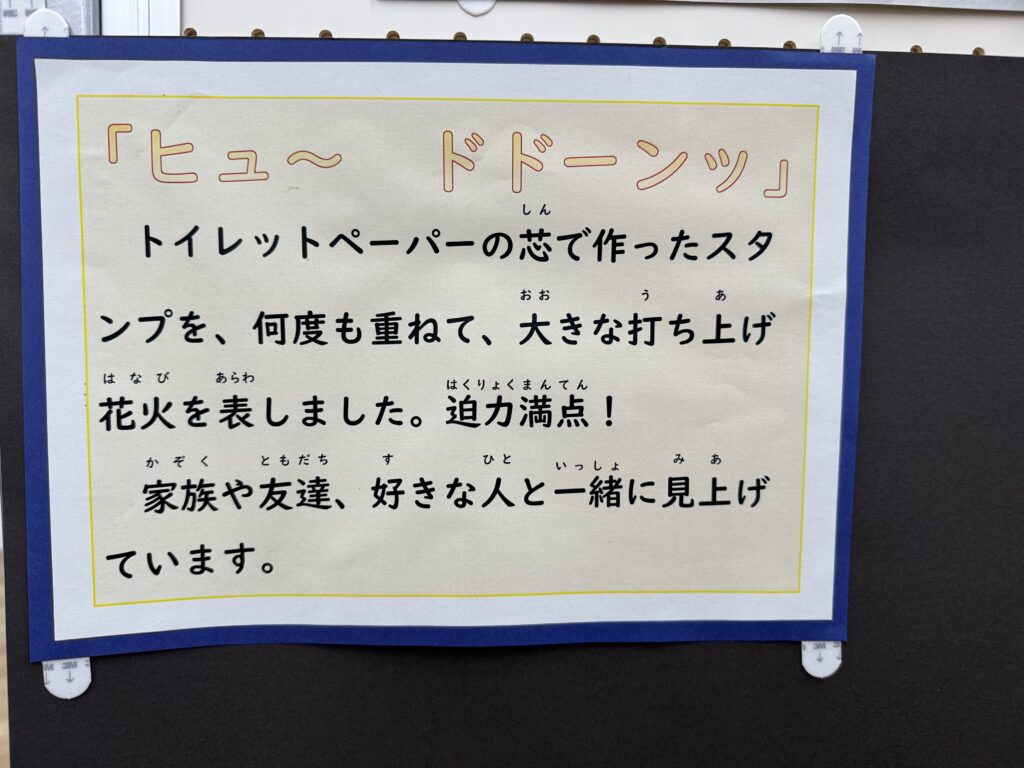 「ヒュ～　ドドーンッ」
しん
トイレットペーパーの芯で作ったスタ
おお う あ
ンプを、何度も重ねて、大きな打ち上げ
はなび あらわ はくりょくまんてん
花火を表しました。迫力満点！
かぞく ともだち す ひと いっしょ み あ
家族や友達、好きな人と一緒に見上げ
ています。
3M
3M
3M
3M